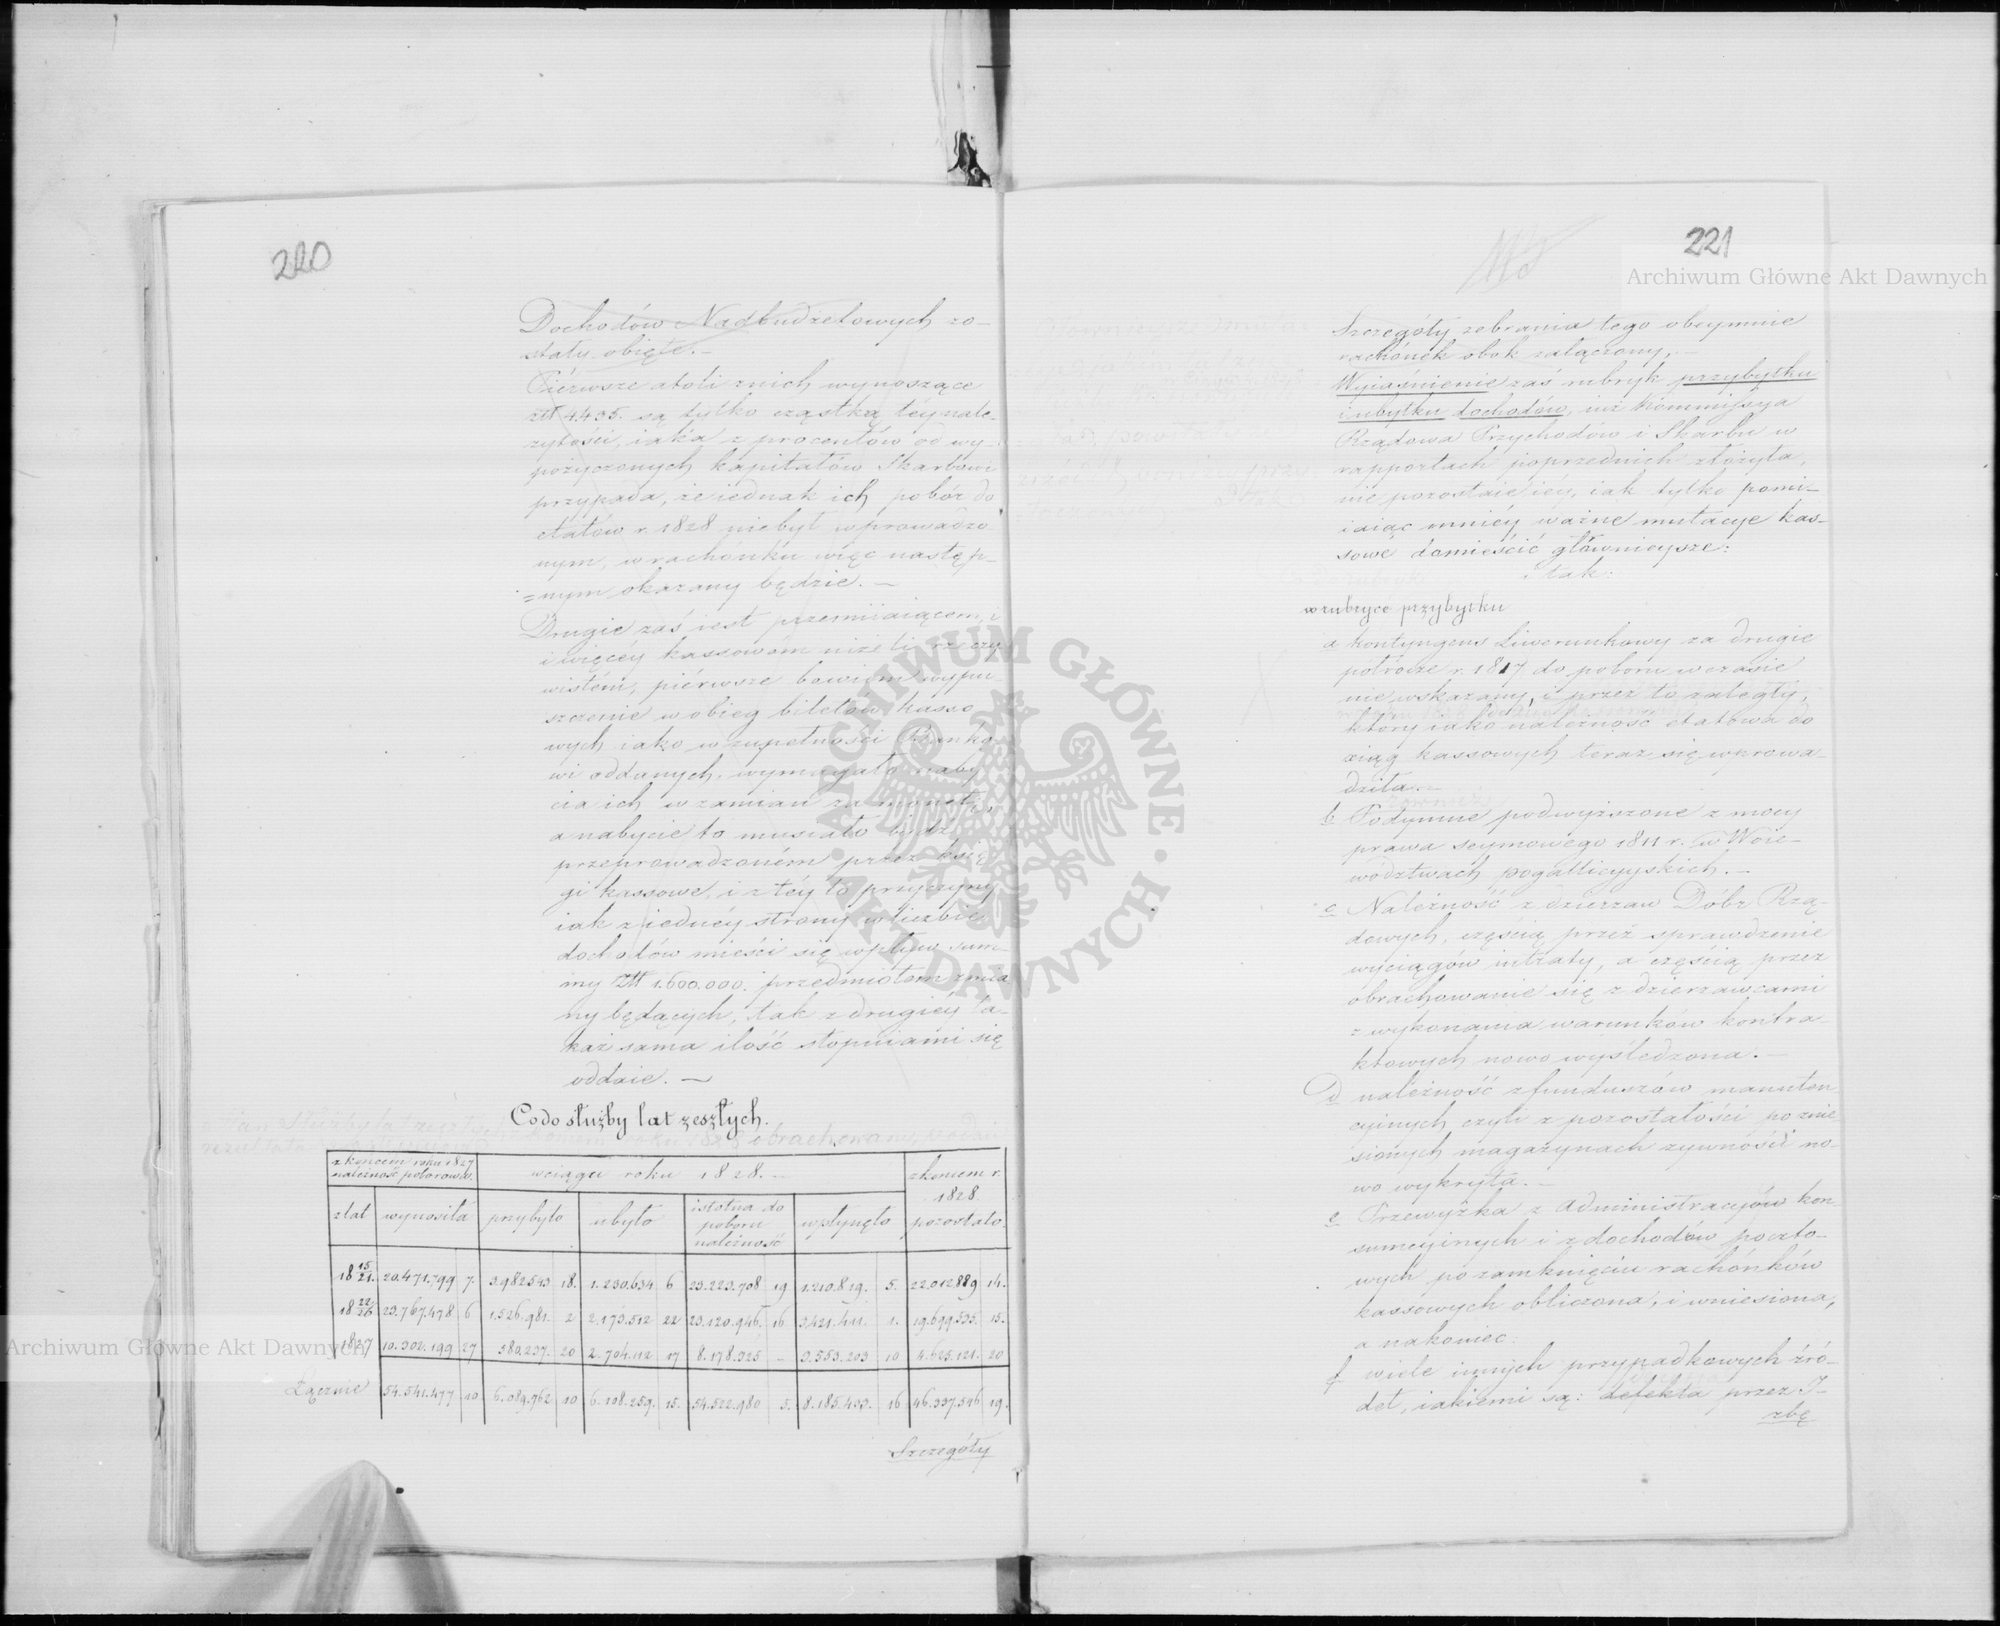 220
Dochodów Nadbudżetowych zo-
stały obięte.—
Piérwsze atoli z nich wynoszące
Złł 4.435. są tylko cząstką téy nale-
żytości, iaka z procentów od wy-
pożyczonych kapitałów Skarbowi
przypada, że iednak ich pobór do
etatów r. 1828 niebył wprowadzo
nym, w rachunku więc następ-
=nym okazany będzie.—
Drugie zaś iest przemiiaiącem, i
i więcéy kassowém niżeli rzeczy
wistém, piérwsze bowiem wypu-
szczenie w obieg biletów kasso
wych iako w zupełności Bankо
wi oddanych, wymagało naby
cia ich w zamian za monetę,
a nabycie to musiało bydź
przeprowadzoném przez księ
gi kassowe, i z téy to przyczyny
iak z iednéy strony w liczbie
dochodów mieści się wpływ sum-
my Złł 1.600.000. przedmiotem zmia
ny będących, tak z drugiéy ta-
każ sama ilość stopniami się
oddaie.—
Co do służby lat zeszłych.
z końcem roku 1827 należność poborowa. w ciągu roku 1828.— z końcem r. 1828.
z lat wynosiła przybyło ubyło istotna do poboru należność wpłynęło pozostało
18 15/21. 20.471.799 7. 3.982.543 18. 1.230.634 6 23.223.708 19 1.210.819. 5. 22.012.889 14.
18 22/26 23.767.478 6 1.526.981. 2 2.173.512 22 23.120.946. 16 3.421.411. 1. 19.699.535. 15.
1827 10.302.199 27 580.237. 20 2.704.112 17 8.178.325 — 3.553.203 10 4.625.121. 20
Łącznie 54.541.477 10 6.089.762 10 6.108.259. 15. 54.522.980 5. 8.185.433. 16 46.337.546 19.
Szczegóły
221
Szczegóły zebrania tego obeymuie
rachunek obok załączony,—
Wyiaśnienie zaś rubryk przybytku
i ubytku dochodów, iuż Kommissya
Rządowa Przychodów i Skarbu w
rapportach poprzednich złożyła,
nie pozostaie iéy, iak tylko pomi-
iaiąc mniéy ważne mutacye kas-
sowe domieścić główniejsze:
i tak:
w rubryce przybytku
a kontyngens Liwerunkowy za drugie
półrocze r. 1817 do poboru w czasie
nie wskazany, a przez to zaległy,
który iako należność etatowa do
xiąg kassowych teraz się wprowa-
dziła.—
b Podymne podwyższone z mocy
prawa seymowego 1811 r. w Woie-
wództwach pogallicyyskich.—
c Należność z dzierżaw Dóbr Rzą-
dowych, częścią przez sprawdzenie
wyciągów intraty, a częścią przez
obrachowanie się z dzierżawcami
z wykonania warunków kontra-
ktowych nowo wyśledzona.—
d należność z funduszów manuten
cyinych czyli z pozostałości po znie-
sionych magazynach żywności no-
wo wykryta.—
e Przewyżka z administracyów kon-
sumcyinych i z dochodów poczto-
wych po zamknięciu rachunków
kassowych obliczona, i wniesiona,
a nakoniec:
f wiele innych przypadkowych źró-
deł, iakiemi są: defekta przez I-
zbę
Archiwum Główne Akt Dawnych
Archiwum Główne Akt Dawnych
ARCHIWUM GŁÓWNE · AKT DAWNYCH ·